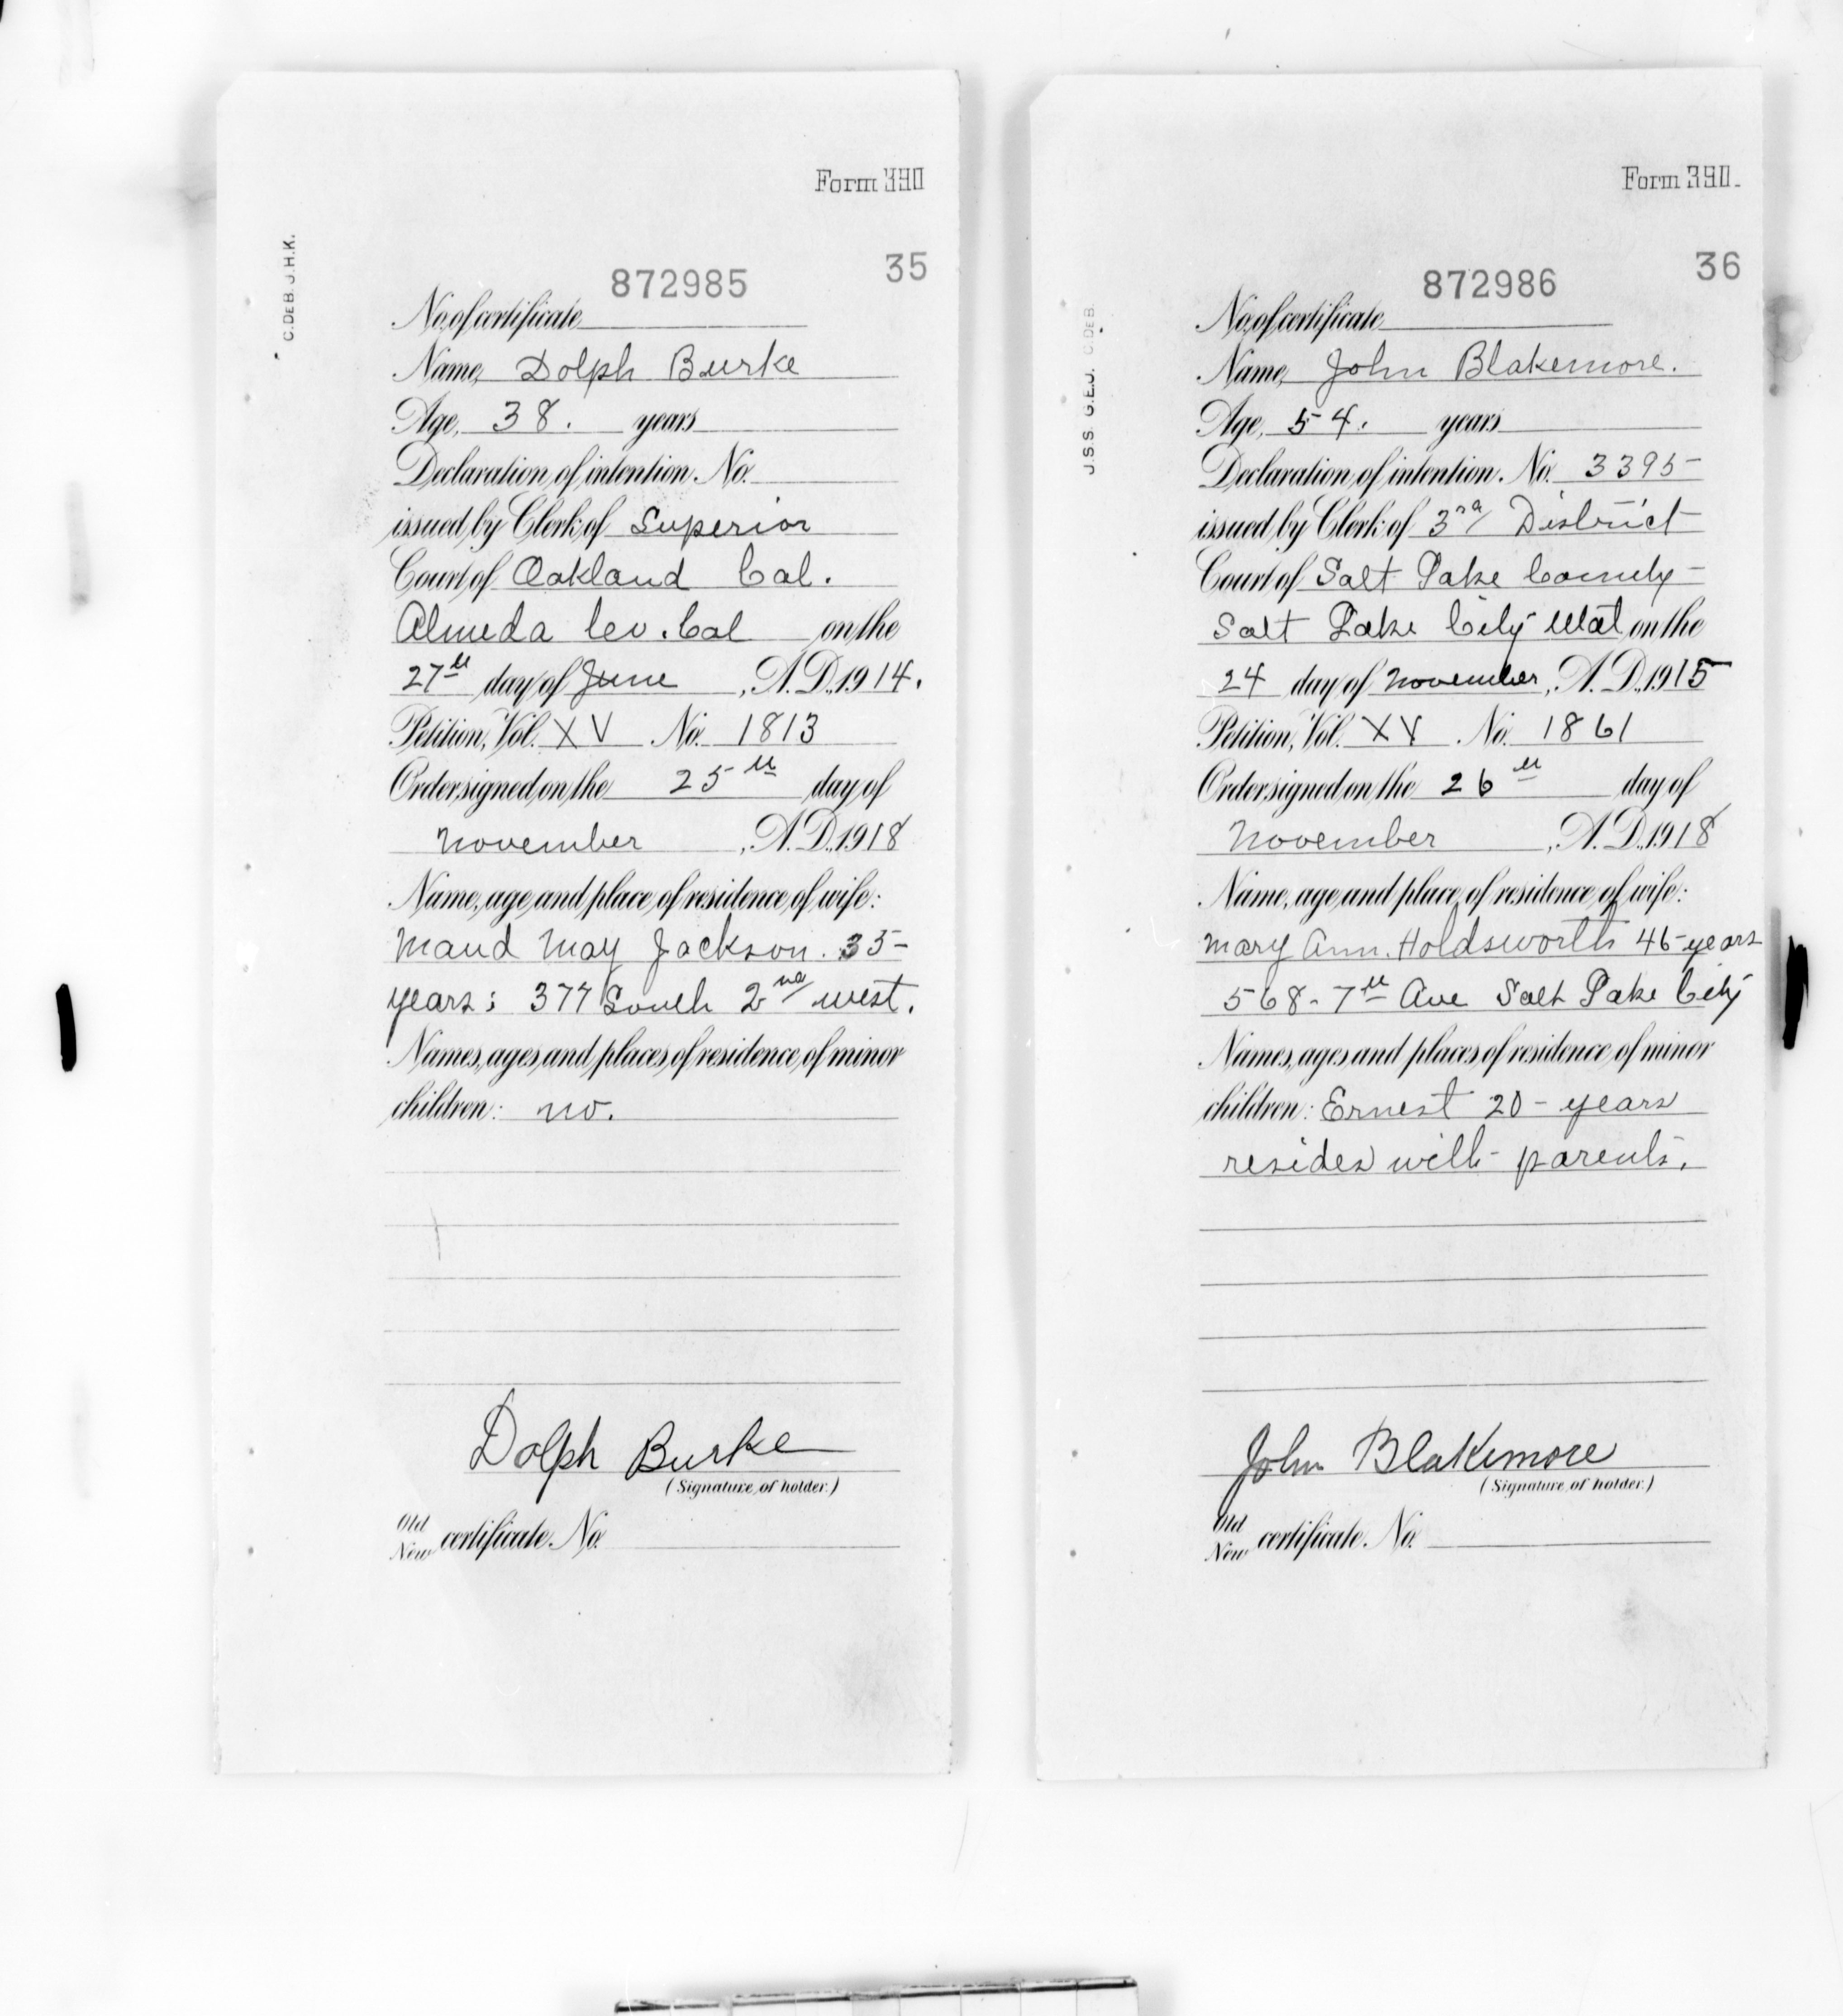 Form 390
C.DEB. J.H.K.
35
872985
No. of certificate
Name, Dolph Burke
Age, 38. years
Declaration of intention. No.
issued by Clerk of Superior
Court of Oakland Cal.
Almeda Co. Cal on the
27th day of June, A.D. 1914.
Petition, Vol. XV No. 1813
Order signed on the 25th day of
November, A.D. 1918
Name, age and place of residence of wife:
Maud May Jackson. 35-
years; 377 South 2nd west.
Names, ages and places of residence of minor
children: no.
Dolph Burke
(Signature of holder.)
Old
New certificate. No.
Form 390.
J.S.S. G.E.J. C.DEB.
36
872986
No. of certificate
Name, John Blakemore.
Age, 54. years
Declaration of intention. No. 3395-
issued by Clerk of 3rd District
Court of Salt Lake County-
Salt Lake City Utah on the
24 day of November, A.D. 1915
Petition, Vol. XV No. 1861
Order signed on the 26th day of
November, A.D. 1918
Name, age and place of residence of wife:
Mary Ann. Holdsworth 46-years
568-7th Ave Salt Lake City
Names, ages and places of residence of minor
children: Ernest 20-years
resides with-parents.
John Blakemore
(Signature of holder.)
Old
New certificate. No.